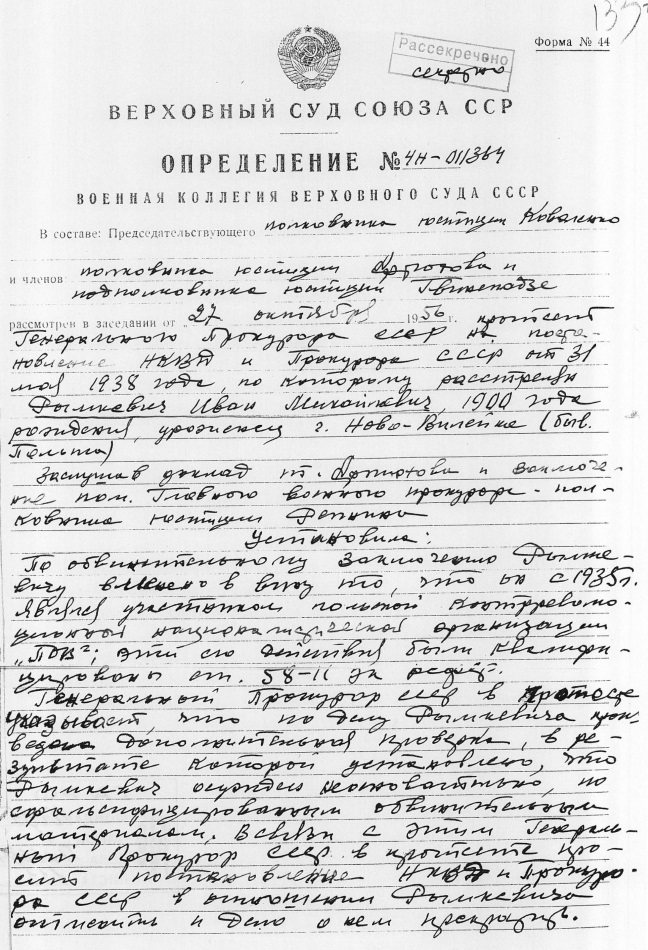 Форма № 44
Рассекречено
секретно
ВЕРХОВНЫЙ СУД СОЮЗА ССР
ОПРЕДЕЛЕНИЕ № 4н-011364
ВОЕННАЯ КОЛЛЕГИЯ ВЕРХОВНОГО СУДА СССР
В составе: Председательствующего полковника юстиции Коваленко
и членов полковника юстиции и
подполковника юстиции
рассмотрен в заседании от "27 октября 1956 г. протест
Генерального Прокурора СССР на поста-
новление НКВД и Прокурора СССР от 31
мая 1938 года, по которому расстрелян
Рымкевич Иван Михайлович, 1900 года
рождения, уроженец г. Ново-Вилейка (быв.
Польша)
Заслушав доклад т. и заключе-
ние пом. Главного военного прокурора - пол-
ковника юстиции
Установила:
По обвинительному заключению Рымке-
вичу вменено в вину то, что он с 1935 г.
являлся участником польской контрреволю-
ционной националистической организации
"ПОВ"; эти его действия были квалифи-
цированы ст. 58-11 УК РСФСР.
Генеральный Прокурор СССР в протесте
указывает, что по делу Рымкевича про-
ведена дополнительная проверка, в ре-
зультате которой установлено, что
Рымкевич осужден неосновательно, по
сфальсифицированным обвинительным
материалам. В связи с этим Генераль-
ный Прокурор СССР в протесте про-
сит постановление НКВД и Прокуро-
ра СССР в отношении Рымкевича
отменить и дело о нем прекратить.